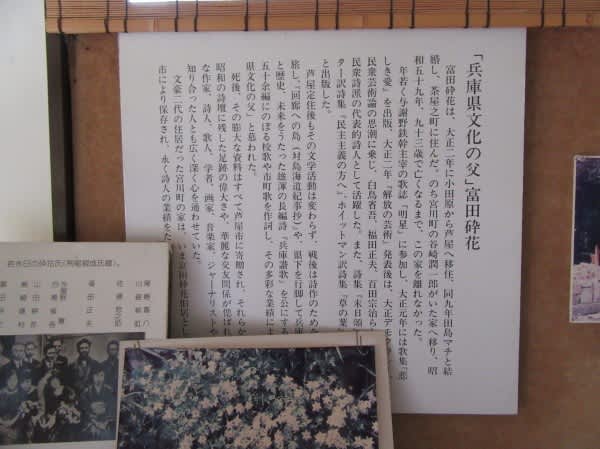 「兵庫県文化の父」富田砕花
富田砕花は、大正二年に小田原から芦屋へ移住、同九年田島マチと結
婚し、茶屋之町に住んだ。のち宮川町の谷崎潤一郎がいた家へ移り、昭
和五十九年、九十三歳で亡くなるまで、この家を離れなかった。
年若く与謝野鉄幹主宰の歌誌「明星」に参加し、大正元年には歌集『悲
しき愛』を出版、大正二年『解放の芸術』発表後は、大正デモクラ
民衆芸術論の思潮に乗じ、白鳥省吾、福田正夫、百田宗治ら
民衆詩派の代表的詩人として活躍した。また、詩集『末日頌』
ター訳詩集『民主主義の方へ』、ホイットマン訳詩集『草の葉
と出版した。
芦屋定住後もその文学活動は変わらず、戦後は詩作のため
旅し、『回廊への島（対島海道紀事抄）』や、県下を行脚して兵庫
と歴史、未来をうたった雄渾の長編詩『兵庫讃歌』を公にする
五十余編にのぼる校歌や市町歌を作詞し、その多彩な業績によ
県文化の父」と慕われた。
死後、その膨大な資料はすべて芦屋市に寄贈され、それらか
昭和の詩壇に残した足跡の偉大さや、華麗な交友関係が偲ばれ
な作家、詩人、歌人、学者、画家、音楽家、ジャーナリストや
知り合った人とも広く深く心を通わせていた。
文豪二代の住居だった宮川町の家は、いま富田砕花旧居とし
市により保存され、永く詩人の業績をた
福田正夫